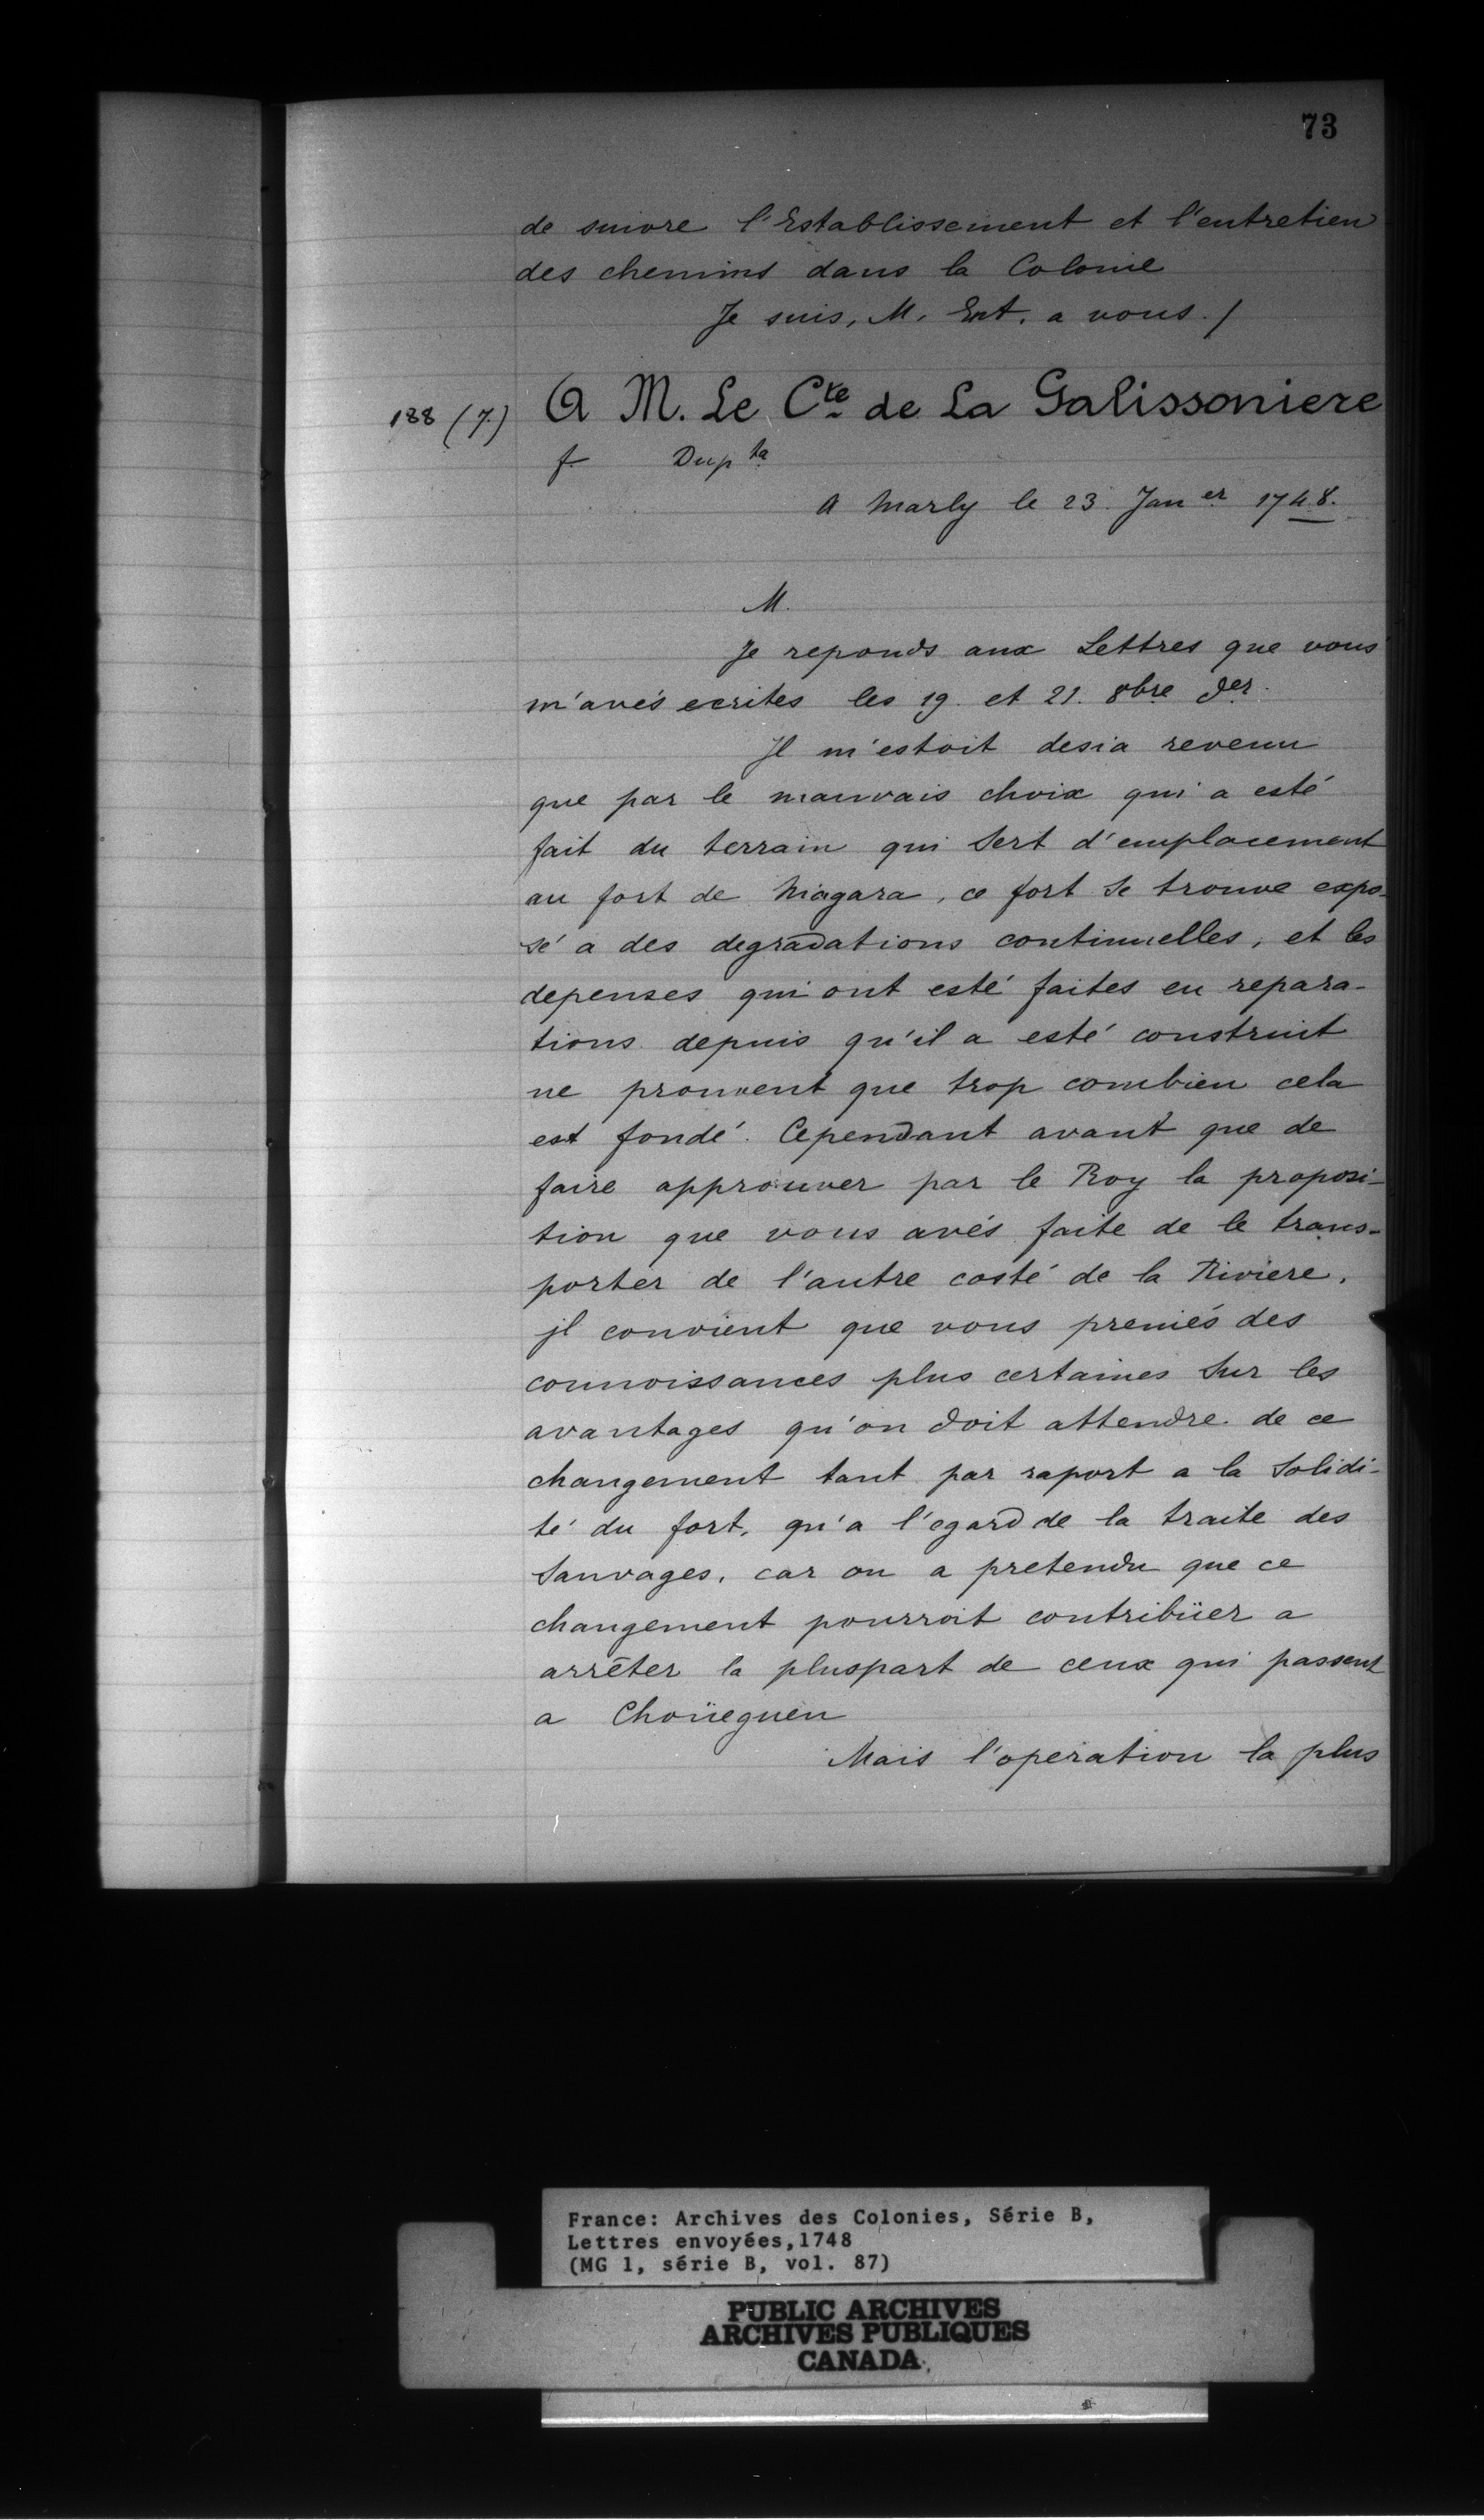 73
de suivre l'Establissement et l'entretien
des chemins dans la Colonie
Je suis, M. Ent. a vous./
188 (7.) A M. Le Cte de La Galissoniere
f. Dupta
A Marly le 23. Janer 1748.
M.
Je reponds aux Lettres que vous
m'avés ecrites les 19. et 21. 8bre der.
Jl m'estoit desia revenu
que par le mauvais choix qui a esté
fait du terrain qui Sert d'emplacement
au fort de Niagara, ce fort Se trouve expo-
sé a des degradations continuelles, et les
depenses qui ont esté faites en repara-
tions depuis qu'il a esté construit
ne prouvent que trop combien cela
est fondé. Cependant avant que de
faire approuver par le Roy la proposi-
tion que vous avés faite de le trans-
porter de l'autre costé de la Riviere,
jl convient que vous preniés des
connoissances plus certaines Sur les
avantages qu'on doit attendre de ce
changement tant par raport a la Solidi-
té du fort, qu'a l'egard de la traite des
Sauvages, car on a pretendu que ce
changement pourroit contribüer a
arrêter la pluspart de ceux qui passent
a Choüeguen
Mais l'operation la plus
France: Archives des Colonies, Série B,
Lettres envoyées,1748
(MG 1, série B, vol. 87)
PUBLIC ARCHIVES
ARCHIVES PUBLIQUES
CANADA